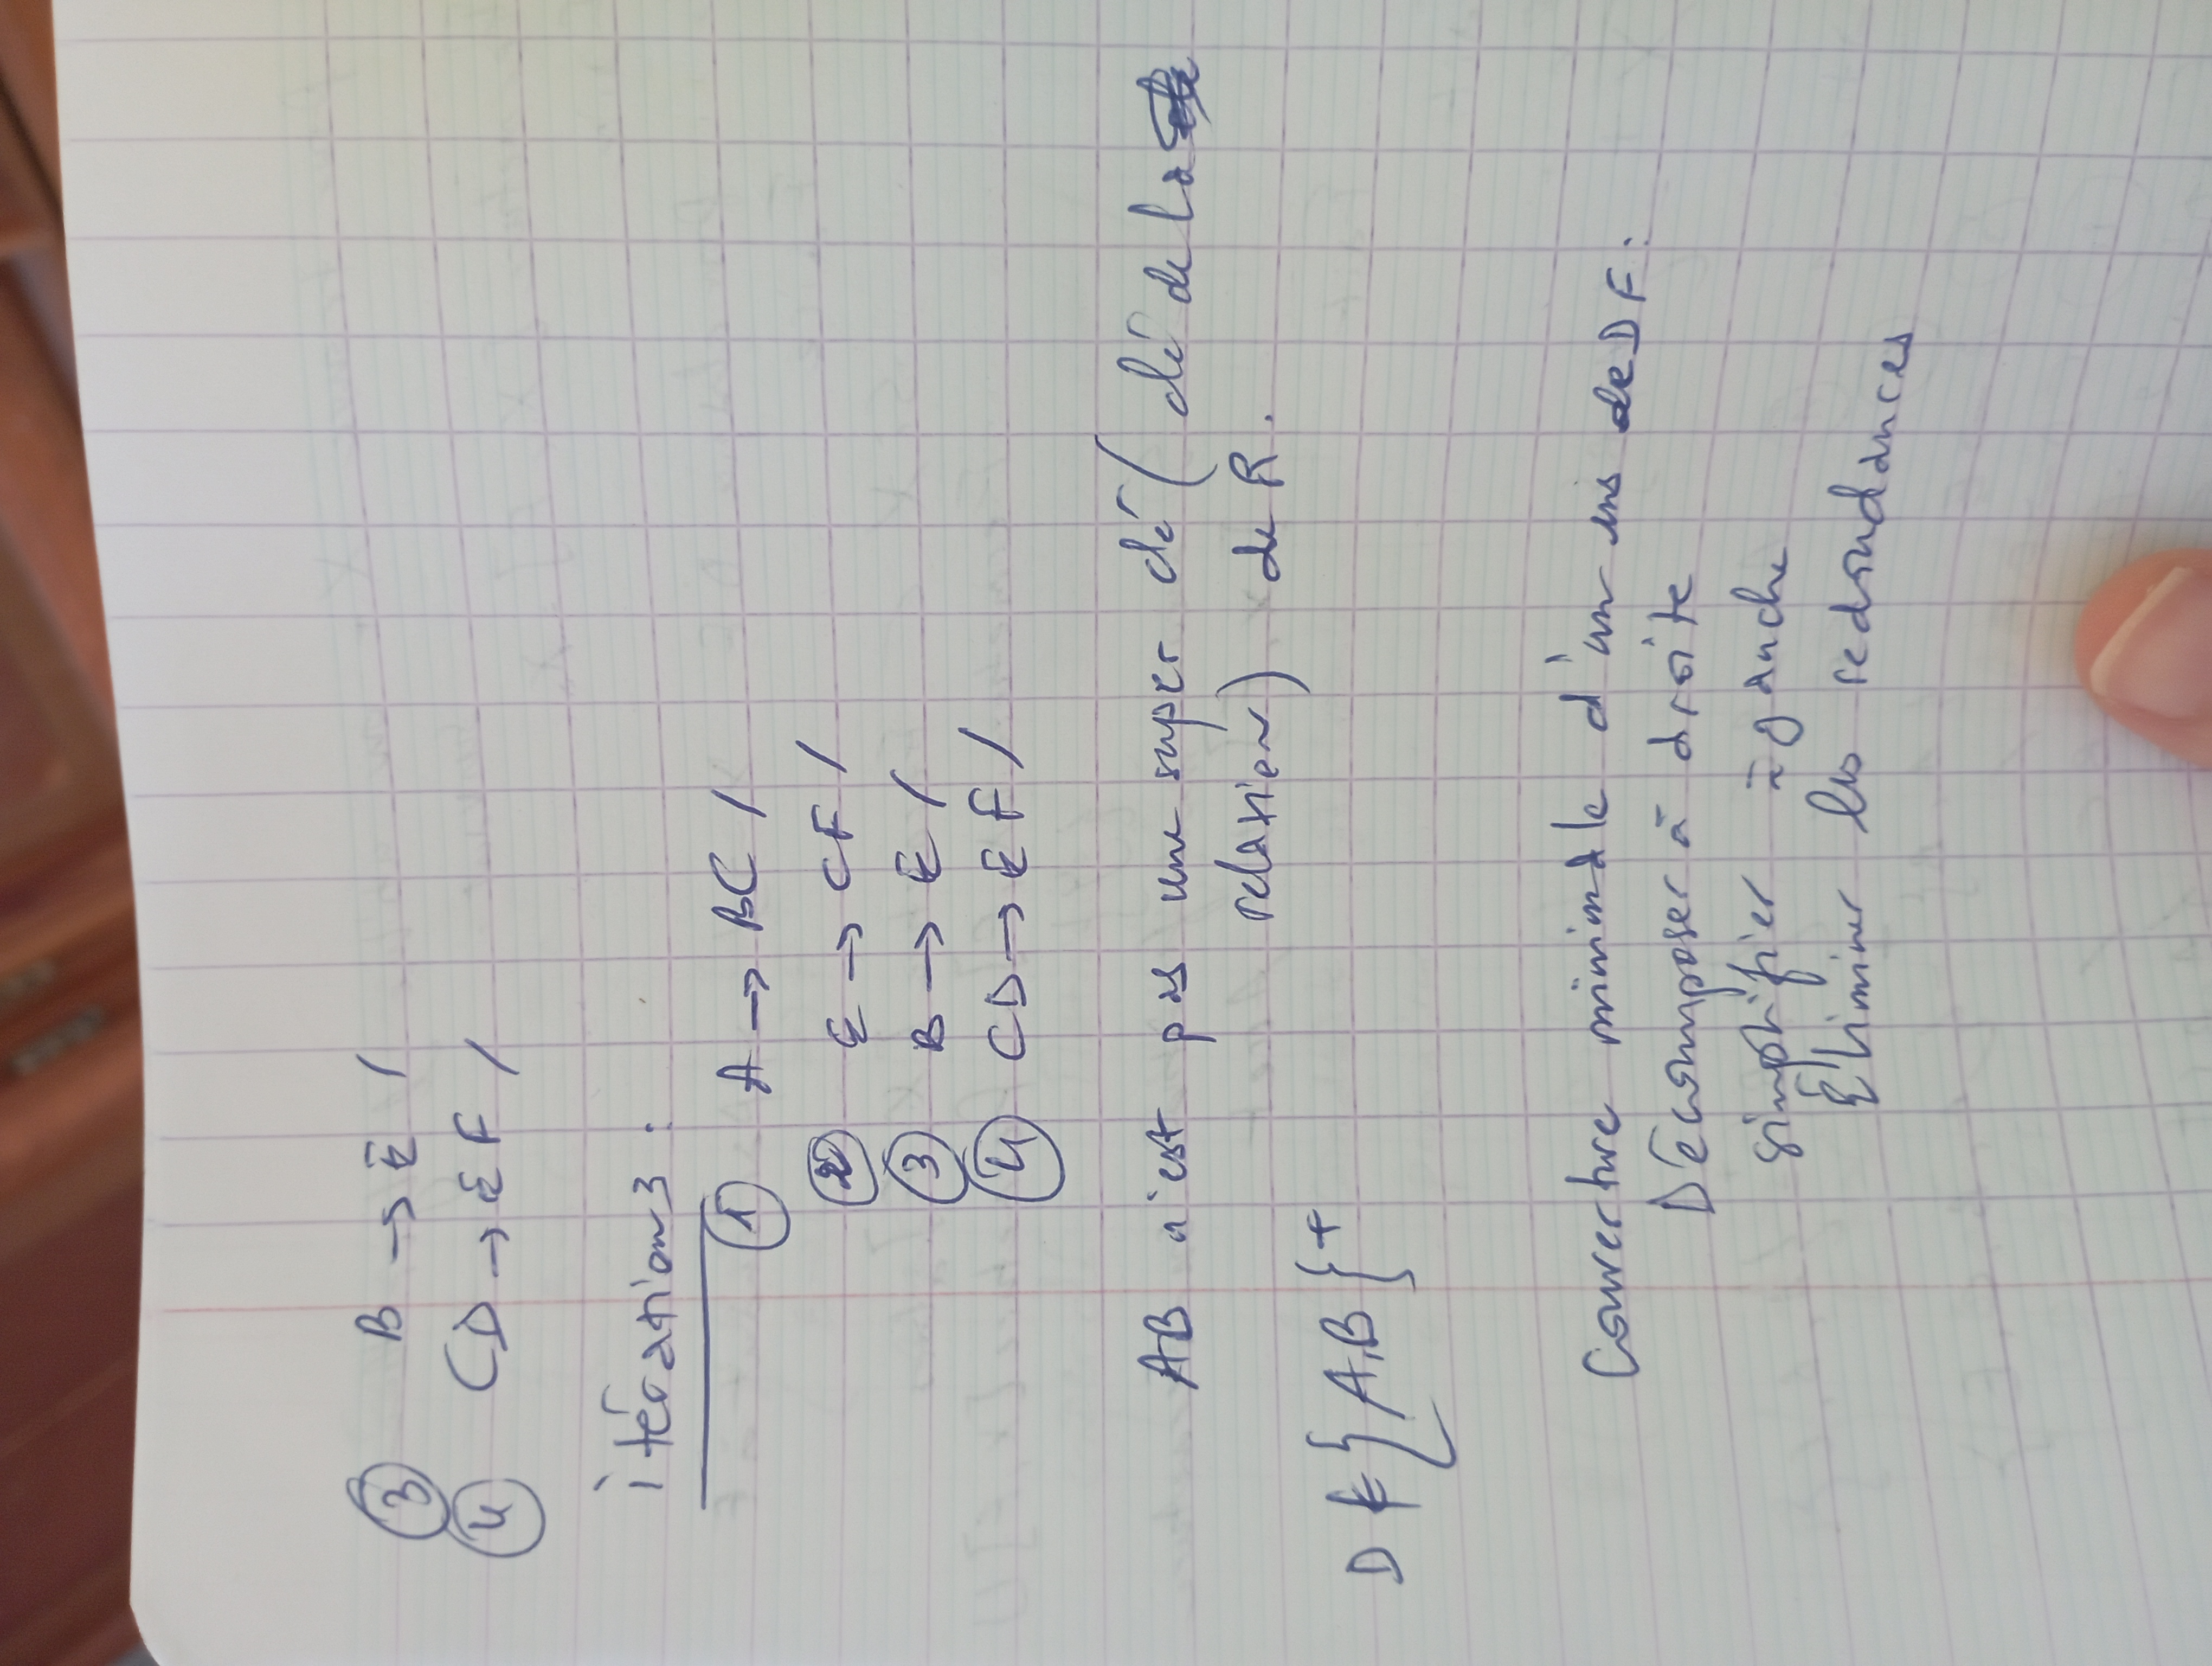 ③ B → E /
④ CD → EF /
itération 3 :
① A → BC /
② E → CF /
③ B → E /
④ CD → EF /
AB n'est pas une super clé (clé de la
relation) de R.
D ∉ {A,B}⁺
Couverture minimale d'un ens de DF :
Décomposer à droite
simplifier à gauche
Éliminer les redondances